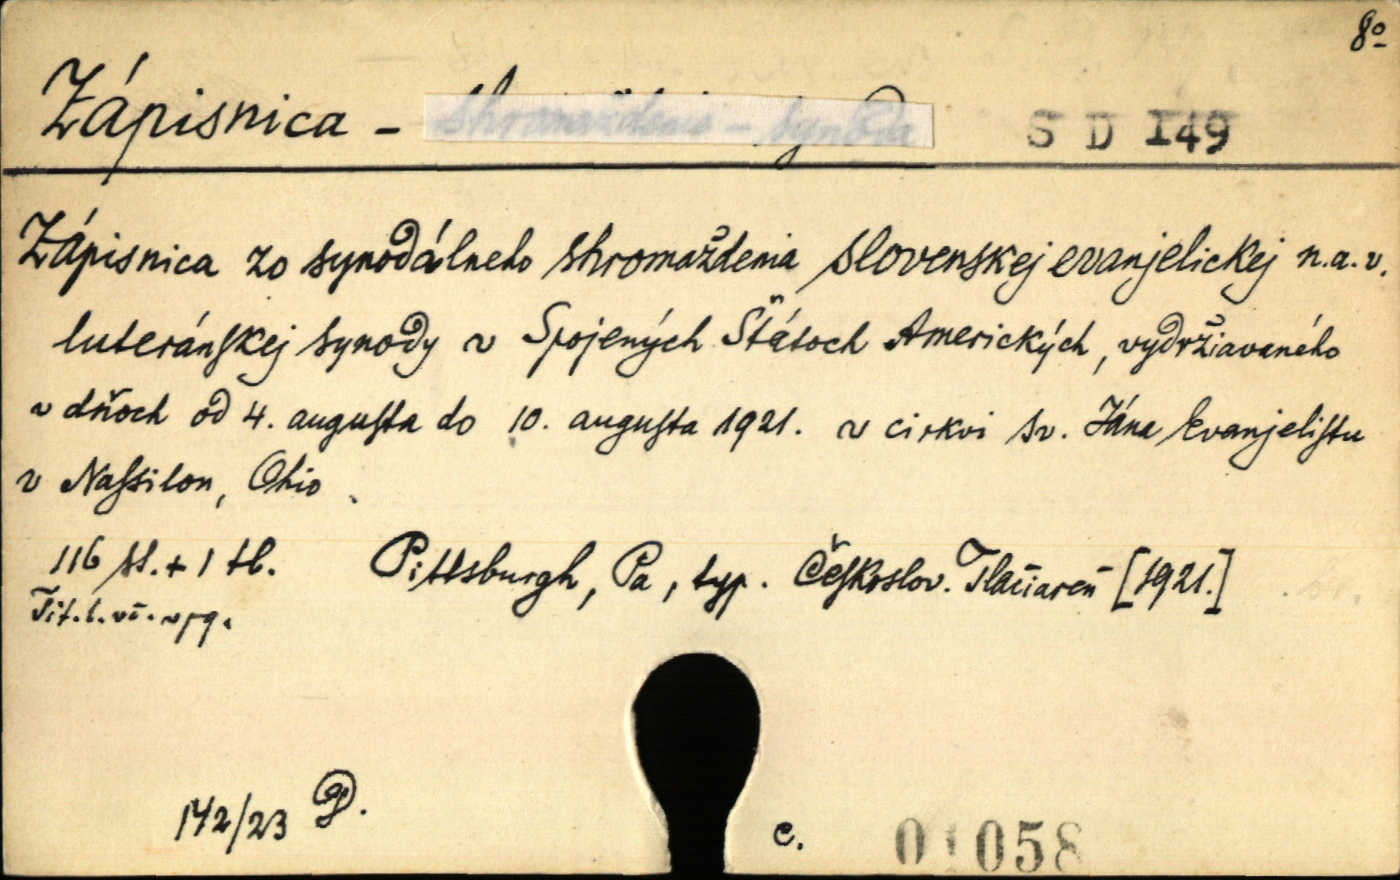 8º
Zápisnica - shromaždenie - synoda S D 149
Zápisnica zo synodálneho shromaždenia slovenskej evanjelickej n.a.v.
luteránskej synody v Spojených Štátoch Amerických, vydržiavaného
v dňoch od 4. augusta do 10. augusta 1921. v cirkvi sv. Jána Evanjelistu
v Nassilon, Ohio.
116 st. + 1 tb. Pittsburgh, Pa, typ. Českoslov. Tlačiareň [1921.]
Tit. l.
142/23 P.
c. 058